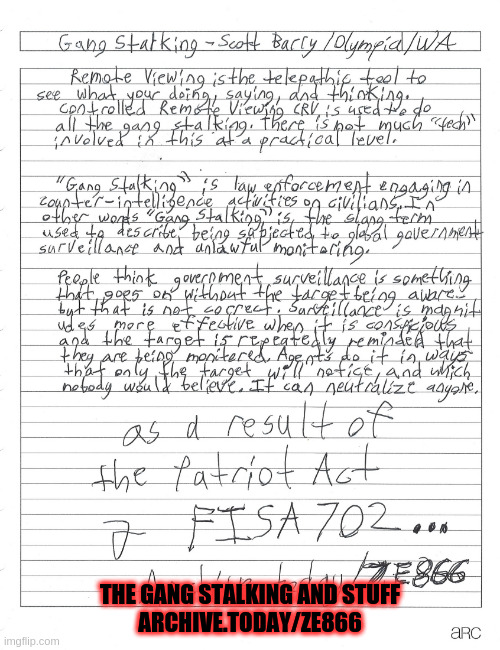 Gang Stalking - Scott Barry/Olympia/WA
Remote Viewing is the telepathic tool to
see what your doing, saying, and thinking.
Controlled Remote Viewing CRV is used to do
all the gang stalking. There is not much "tech"
involved in this at a practical level.
"Gang Stalking" is law enforcement engaging in
counter-intelligence activities on civilians. In
other words "Gang Stalking" is the slang term
used to describe being subjected to global government
surveillance and unlawful monitoring.
People think government surveillance is something
that goes on without the target being aware-
but that is not correct. Surveillance is magnit
udes more effective when it is conspicious
and the target is repeatedly reminded that
they are being monitored. Agents do it in ways
that only the target will notice, and which
nobody would believe. It can neutralize anyone.
as a result of
the Patriot Act
FISA 702...
/ZE866
THE GANG STALKING AND STUFF
ARCHIVE.TODAY/ZE866
aRC
imgflip.com